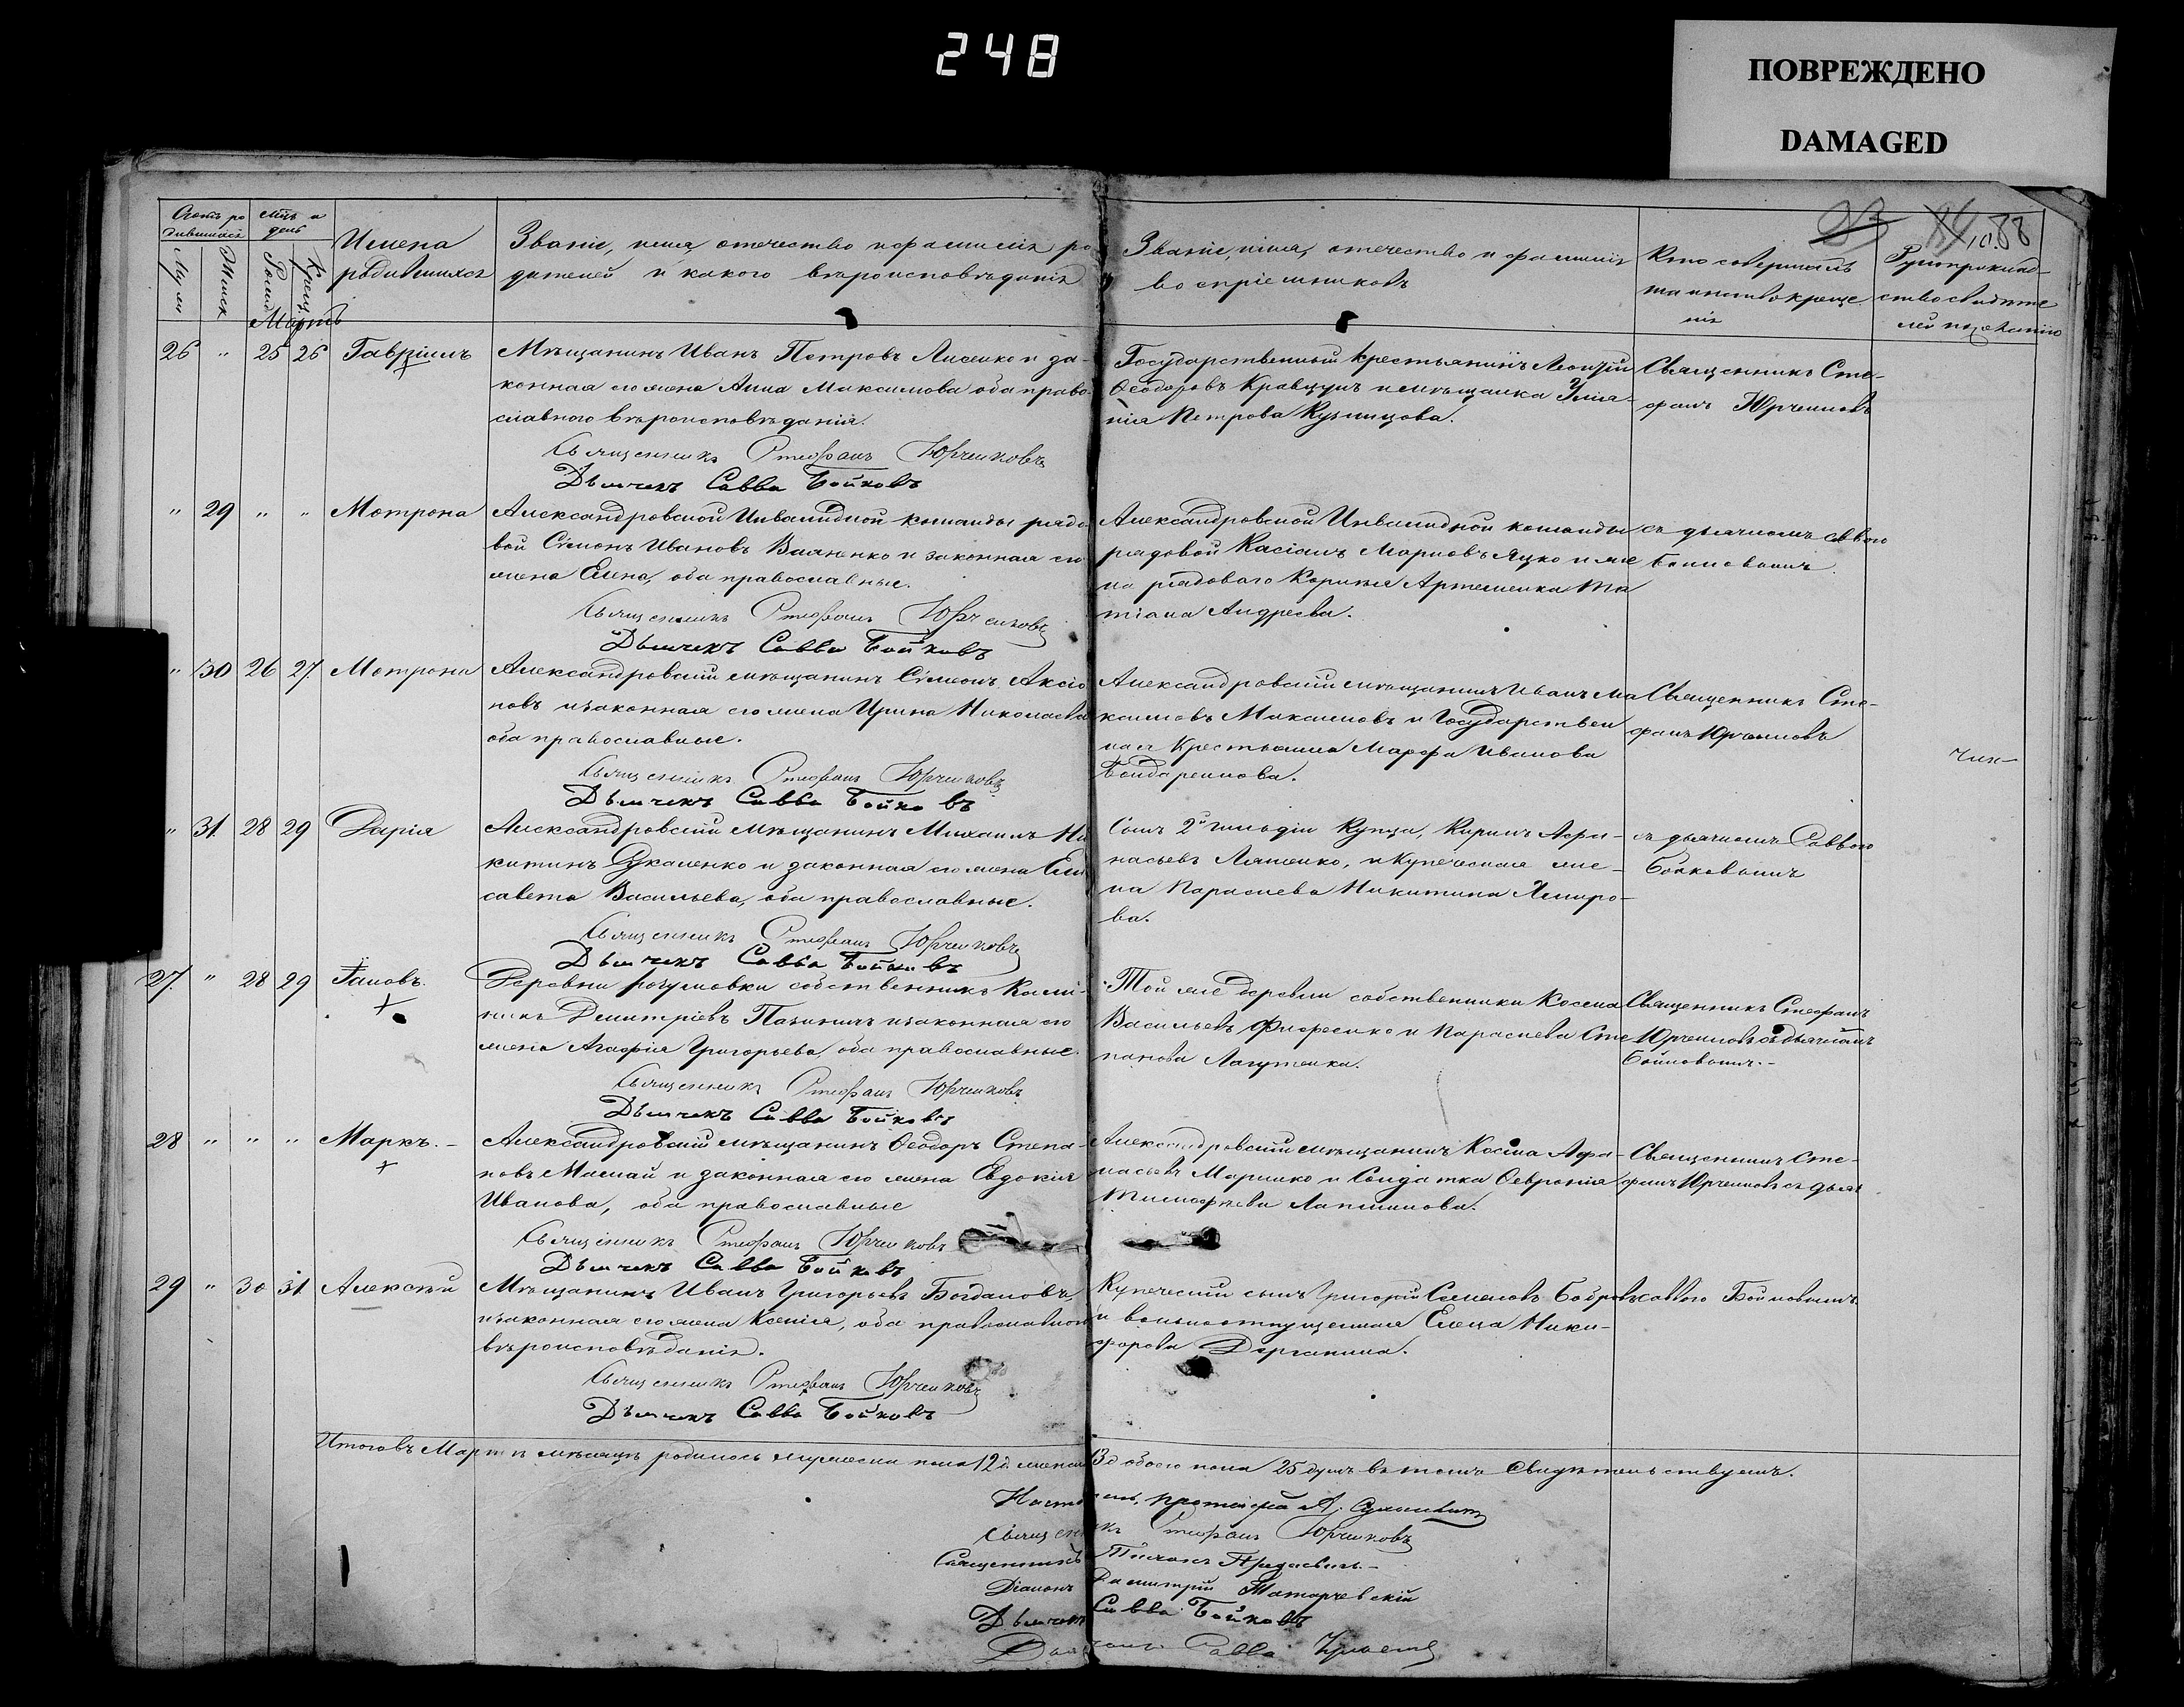 248
ПОВРЕЖДЕНО
DAMAGED
88
Счетъ ро
дившихся
Муж
Женск
мѣс и
день
Рожд
Крещ
Мартъ
Имена
родившихся
Званіе, имя, отечество и фамилія ро
дителей и какого вѣроисповѣданія
Званіе, имя, отечество и фамилія
воспріемниковъ
Кто совершалъ
таинство креще
нія
Рукоприклад-
ство свидѣте
лей по желанію
26 " 25 26 Гавріилъ
Мѣщанинъ Иванъ Петровъ Лисенко и за-
конная его жена Анна Максимова оба право-
славного вѣроисповѣданія.
Священникъ Стефанъ Юрченковъ
Дьячекъ Савва Бойковъ
Государственный крестьянинъ Леонтій
Ѳеодоровъ Кравцунъ и мѣщанка
нія Петрова Кузницова.
Священникъ Сте-
фанъ Юрченковъ
" 29 " " Мотрона
Александровской Инвалидной команды рядо
вой Сімонъ Ивановъ и законная его
жена Елена, оба православные.
Священникъ Стефанъ Юрченковъ
Дьячекъ Савва Бойковъ
Александровской Инвалидной команды
рядовой Касіанъ Марковъ Яцко и же
на рядового Корнилія Артеменка Та
тіана Андреева.
съ дьячкомъ Саввою
Бойковымъ
" 30 26 27. Мотрона
Александровскій мѣщанинъ Сімеонъ Аксіо
новъ и законная его жена Ирина Николаева
оба православные.
Священникъ Стефанъ Юрченковъ
Дьячекъ Савва Бойковъ
Александровскій мѣщанинъ Иванъ Ма
ксимовъ Максимовъ и Государствен
ная Крестьянка Марфа Иванова
Бондаренкова.
Священникъ Сте-
фанъ Юрченковъ
" 31 28 29 Дарія
Александровскій мѣщанинъ Михаилъ Ни
китинъ и законная его жена Ели
савета Васильева, оба православные.
Священникъ Стефанъ Юрченковъ
Дьячекъ Савва Бойковъ
Сынъ 2й гильдіи Купца, Кирилъ Афа-
насьевъ Ляшенко, и Купеческая же-
на Параскева Никитина
ва.
съ дьячкомъ Саввою
Бойковымъ
27. " 28 29 Іаковъ.
Деревни собственникъ
Димитріевъ и законная его
жена Агафія Григорьева, оба православные.
Священникъ Стефанъ Юрченковъ
Дьячекъ Савва Бойковъ
Той же деревни собственники Косма
Васильевъ и Параскева Сте
панова Лагутенка.
Священникъ Стефанъ
Юрченковъ съ дьячкомъ
Бойковымъ.-
28 " " " Маркъ.-
Александровскій мѣщанинъ Ѳеодоръ Степа-
новъ Мамай и законная его жена Евдокія
Иванова, оба православные
Священникъ Стефанъ Юрченковъ
Дьячекъ Савва Бойковъ
Александровскій мѣщанинъ Косма Афа-
насьевъ и Солдатка Ѳевронія
Тимофѣева Лапшинова.
Священникъ Сте-
фанъ Юрченковъ съ дьяч
29 " 30 31 Алексѣй
Мѣщанинъ Иванъ Григорьевъ Богдановъ,
и законная его жена Ксенія, оба православного
вѣроисповѣданія.
Священникъ Стефанъ Юрченковъ
Дьячекъ Савва Бойковъ
Купеческій сынъ Григорій Семеновъ
и вольноотпущенная Елена Ники-
форова
Саввою Бойковымъ.
Итого въ Мартѣ мѣсяцѣ родилось мужеска пола 12 д. женска 13 д обоего пола 25 душъ въ томъ свидѣтельствуемъ.
Настоятель, протоіерей А.
Священникъ Стефанъ Юрченковъ
Священникъ
Діаконъ Димитрій Татарчевскій
Дьячекъ Савва Бойковъ
Савва